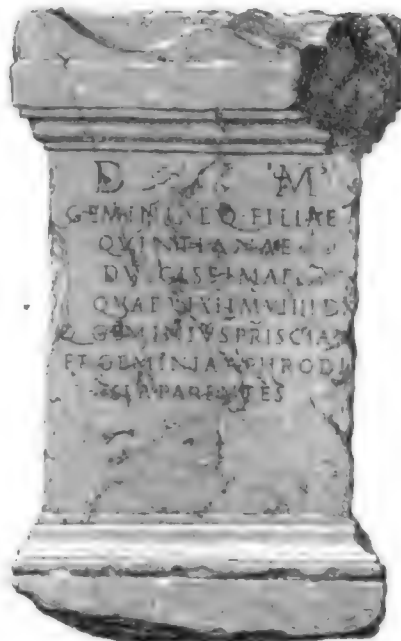 D M
GEMINIAE Q FILIAE
QVINTIANAE
DVLCISSIMAE
QVAE VIXIT
GEMINIVS PRISCIAN
ET GEMINIA APHRODI
SIA PARENTES